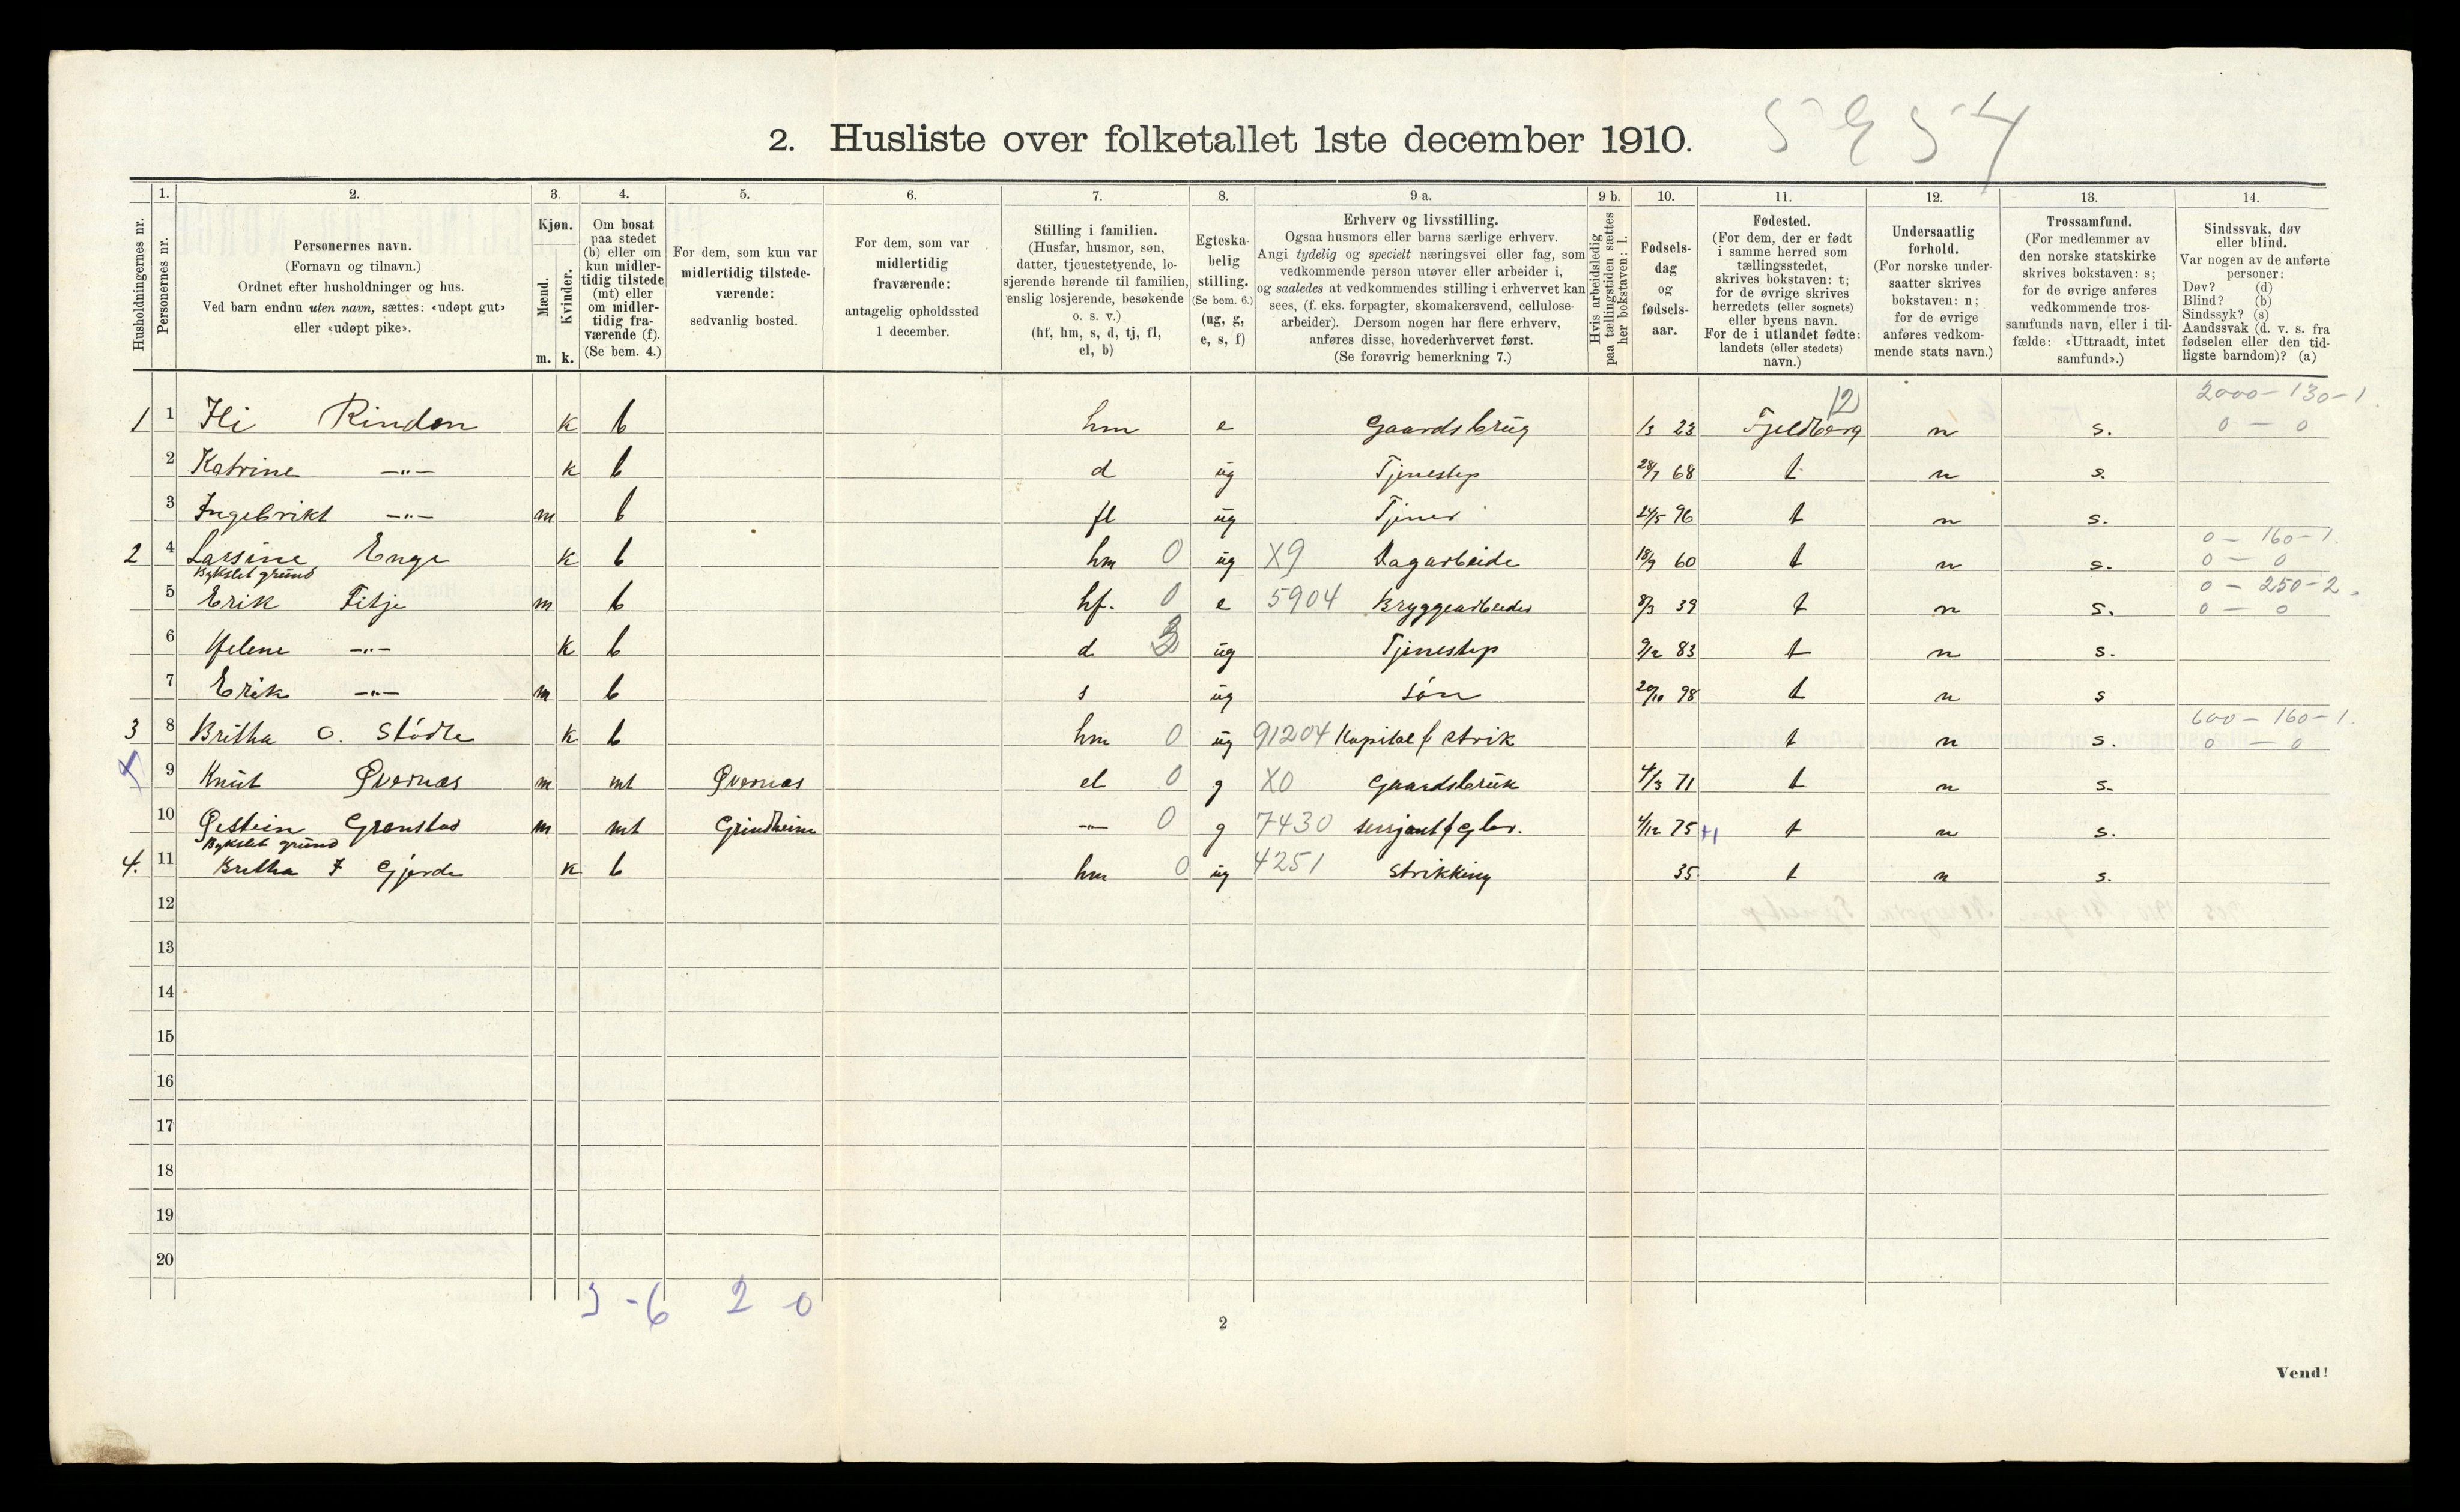 2. Husliste over folketallet 1ste december 1910.
Husholdningernes nr.
1. Personernes nr.
2. Personernes navn.
(Fornavn og tilnavn.)
Ordnet efter husholdninger og hus.
Ved barn endnu uten navn, sættes: «udøpt gut»
eller «udøpt pike».
3. Kjøn.
Mænd. Kvinder.
m. k.
4. Om bosat
paa stedet
(b) eller om
kun midler-
tidig tilstede
(mt) eller
om midler-
tidig fra-
værende (f).
(Se bem. 4.)
5. For dem, som kun var
midlertidig tilstede-
værende:
sedvanlig bosted.
6. For dem, som var
midlertidig
fraværende:
antagelig opholdssted
1 december.
7. Stilling i familien.
(Husfar, husmor, søn,
datter, tjenestetyende, lo-
sjerende hørende til familien,
enslig losjerende, besøkende
o. s. v.)
(hf, hm, s, d, tj, fl,
el, b)
8. Egteska-
belig
stilling.
(Se bem. 6.)
(ug, g,
e, s, f)
9 a. Erhverv og livsstilling.
Ogsaa husmors eller barns særlige erhverv.
Angi tydelig og specielt næringsvei eller fag, som
vedkommende person utøver eller arbeider i,
og saaledes at vedkommendes stilling i erhvervet kan
sees, (f. eks. forpagter, skomakersvend, cellulose-
arbeider). Dersom nogen har flere erhverv,
anføres disse, hovederhvervet først.
(Se forøvrig bemerkning 7.)
9 b. Hvis arbeidsledig
paa tællingstiden sættes
her bokstaven: l.
10. Fødsels-
dag
og
fødsels-
aar.
11. Fødested.
(For dem, der er født
i samme herred som
tællingsstedet,
skrives bokstaven: t;
for de øvrige skrives
herredets (eller sognets)
eller byens navn.
For de i utlandet fødte:
landets (eller stedets)
navn.)
12. Undersaatlig
forhold.
(For norske under-
saatter skrives
bokstaven: n;
for de øvrige
anføres vedkom-
mende stats navn.)
13. Trossamfund.
(For medlemmer av
den norske statskirke
skrives bokstaven: s;
for de øvrige anføres
vedkommende tros-
samfunds navn, eller i til-
fælde: «Uttraadt, intet
samfund».)
14. Sindssvak, døv
eller blind.
Var nogen av de anførte
personer:
Døv? (d)
Blind? (b)
Sindssyk? (s)
Aandssvak (d. v. s. fra
fødselen eller den tid-
ligste barndom)? (a)
12 2000-130-1
1 1 Ili Rinden k b hm e Gaardsbrug 1/3 23 Fjeldberg n s. 0 - 0
2 Katrine -"- k b d ug Tjenestep 28/7 68 t n s.
3 Ingebrikt -"- m b fl ug Tjener 24/5 96 t n s.
0 - 160-1.
2 4 Larsine Enge k b hm 0 ug X9 Dagarbeide 18/9 60 t n s. 0 - 0
Bykslet grund 0 - 250-2.
5 Erik Fitje m b hf. 0 e 5904 Bryggearbeider 8/3 39 t n s. 0 - 0
6 Helene -"- k b d ug Tjenestep 9/12 83 t n s.
7 Erik -"- m b s ug søn 20/10 98 t n s
600 - 160-1.
3 8 Britha O. Stödle k b hm 0 ug 91204 Kapital f Strik t n s. 0 - 0
9 Knut Qvernæs m mt Qvernæs el 0 g X0 Gaardsbruk 4/3 71 t n s.
10 Østein Grønstad m mt Grindheim -"- 0 g 7430 sersjant f Glev. 4/12 75 +1 t n s.
Bykslet grund
4. 11 Britha I Gjerde k b hm 0 ug 4251 Strikking 35 t n s.
12
13
14
15
16
17
18
19
20
3 - 6 2 0
2
Vend!